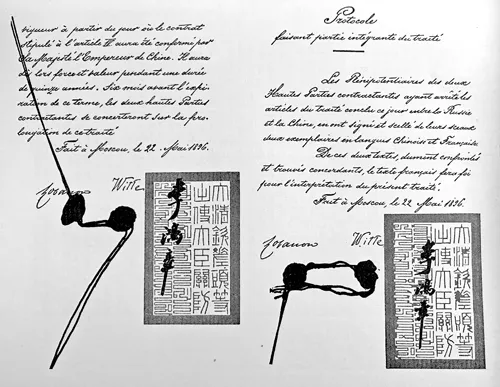 vigueur à partir du jour où le contrat
stipulé à l'article IV aura été confirmé par
Sa Majesté l'Empereur de Chine. Il aura
dès lors force et valeur pendant une durée
de quinze années. Six mois avant l'expi-
ration de ce terme, les deux hautes Parties
contractantes se concerteront sur la pro-
longation de ce traité
Fait à Moscou, le 22. Mai 1896.
Lobanow Witte
李鴻章
大清欽差頭等
出使大臣關防
Protocole
faisant partie intégrante du traité
Les Plénipotentiaires des deux
Hautes Parties contractantes ayant arrêté les
articles du traité conclu ce jour entre la Russie
et la Chine, en ont signé et scellé de leurs sceaux
deux exemplaires en langues Chinois et Française
De ces deux textes, dûment confrontés
et trouvés concordants, le texte français fera foi
pour l'interprétation du présent traité.
Fait à Moscou, le 22 Mai 1896.
Lobanow Witte
李鴻章
大清欽差頭等
出使大臣關防